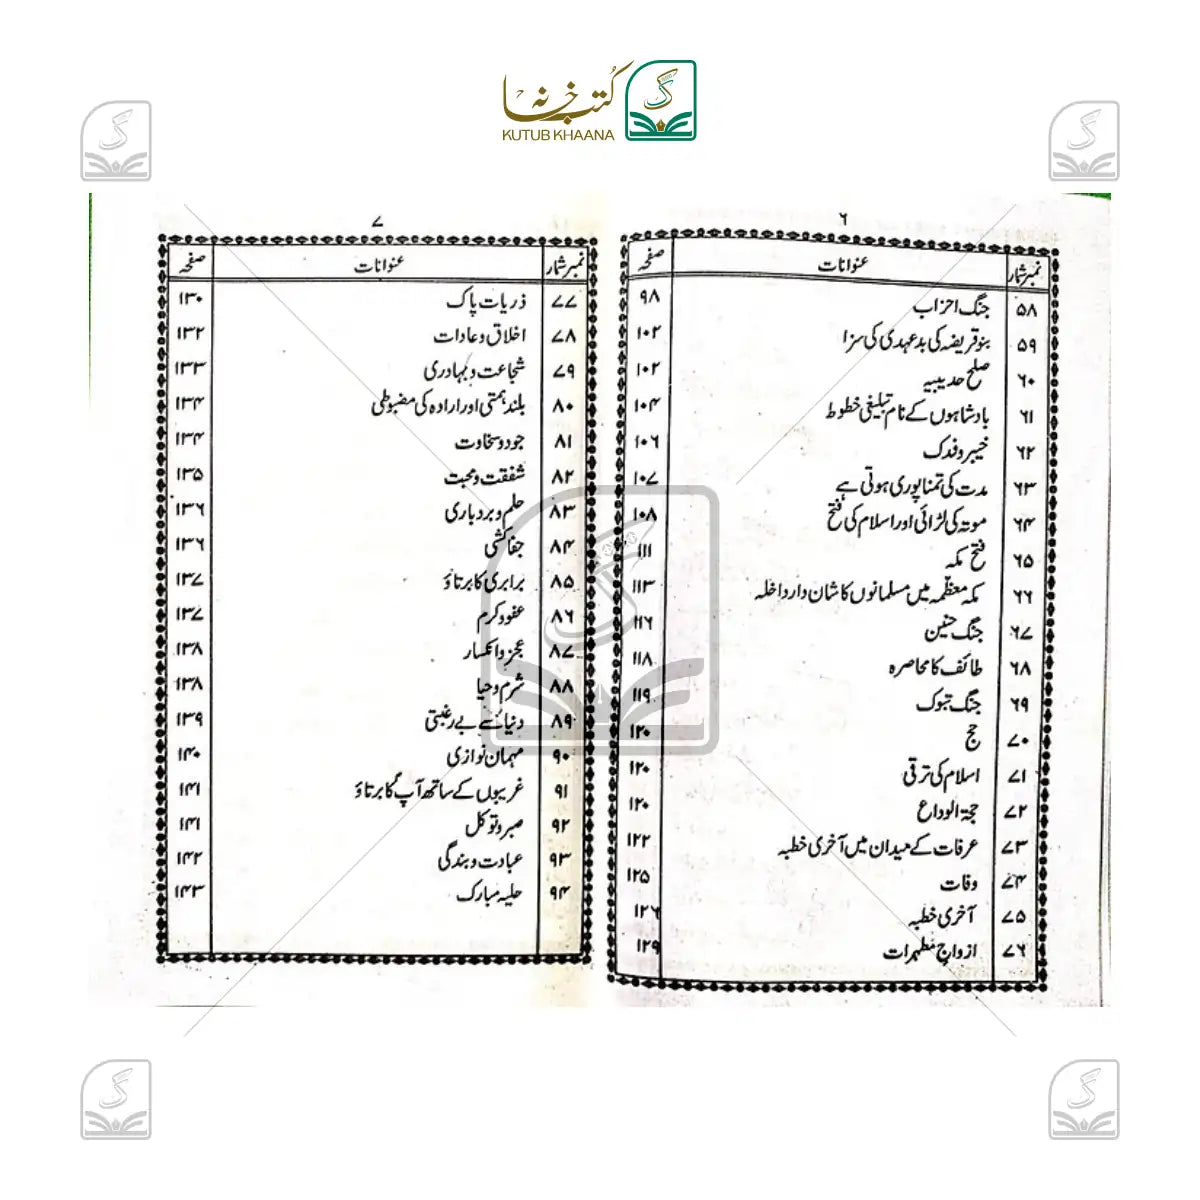 کتب خانہ
KUTUB KHAANA
۶
نمبر شمار عنوانات صفحہ
۵۸ جنگ احزاب ۹۸
۵۹ بنو قریضہ کی بدعہدی کی سزا ۱۰۲
۶۰ صلح حدیبیہ ۱۰۲
۶۱ بادشاہوں کے نام تبلیغی خطوط ۱۰۴
۶۲ خیبر و فدک ۱۰۶
۶۳ مدت کی تمنا پوری ہوتی ہے ۱۰۷
۶۴ موتہ کی لڑائی اور اسلام کی فتح ۱۰۸
۶۵ فتح مکہ ۱۱۱
۶۶ مکہ معظمہ میں مسلمانوں کا شان دار داخلہ ۱۱۳
۶۷ جنگ حنین ۱۱۶
۶۸ طائف کا محاصرہ ۱۱۸
۶۹ جنگ تبوک ۱۱۹
۷۰ حج ۱۲۰
۷۱ اسلام کی ترقی ۱۲۰
۷۲ حجۃ الوداع ۱۲۰
۷۳ عرفات کے میدان میں آخری خطبہ ۱۲۲
۷۴ وفات ۱۲۵
۷۵ آخری خطبہ ۱۲۶
۷۶ ازواجِ مطہرات ۱۲۹
۷
نمبر شمار عنوانات صفحہ
۷۷ ذریات پاک ۱۳۰
۷۸ اخلاق و عادات ۱۳۲
۷۹ شجاعت و بہادری ۱۳۳
۸۰ بلند ہمتی اور ارادہ کی مضبوطی ۱۳۴
۸۱ جود و سخاوت ۱۳۴
۸۲ شفقت و محبت ۱۳۵
۸۳ حلم و بردباری ۱۳۶
۸۴ جفاکشی ۱۳۶
۸۵ برابری کا برتاؤ ۱۳۷
۸۶ عفو و کرم ۱۳۷
۸۷ عجز و انکسار ۱۳۸
۸۸ شرم و حیا ۱۳۸
۸۹ دنیا سے بے رغبتی ۱۳۹
۹۰ مہمان نوازی ۱۴۰
۹۱ غریبوں کے ساتھ آپ کا برتاؤ ۱۴۱
۹۲ صبر و توکل ۱۴۱
۹۳ عبادت و بندگی ۱۴۲
۹۴ حلیہ مبارک ۱۴۳